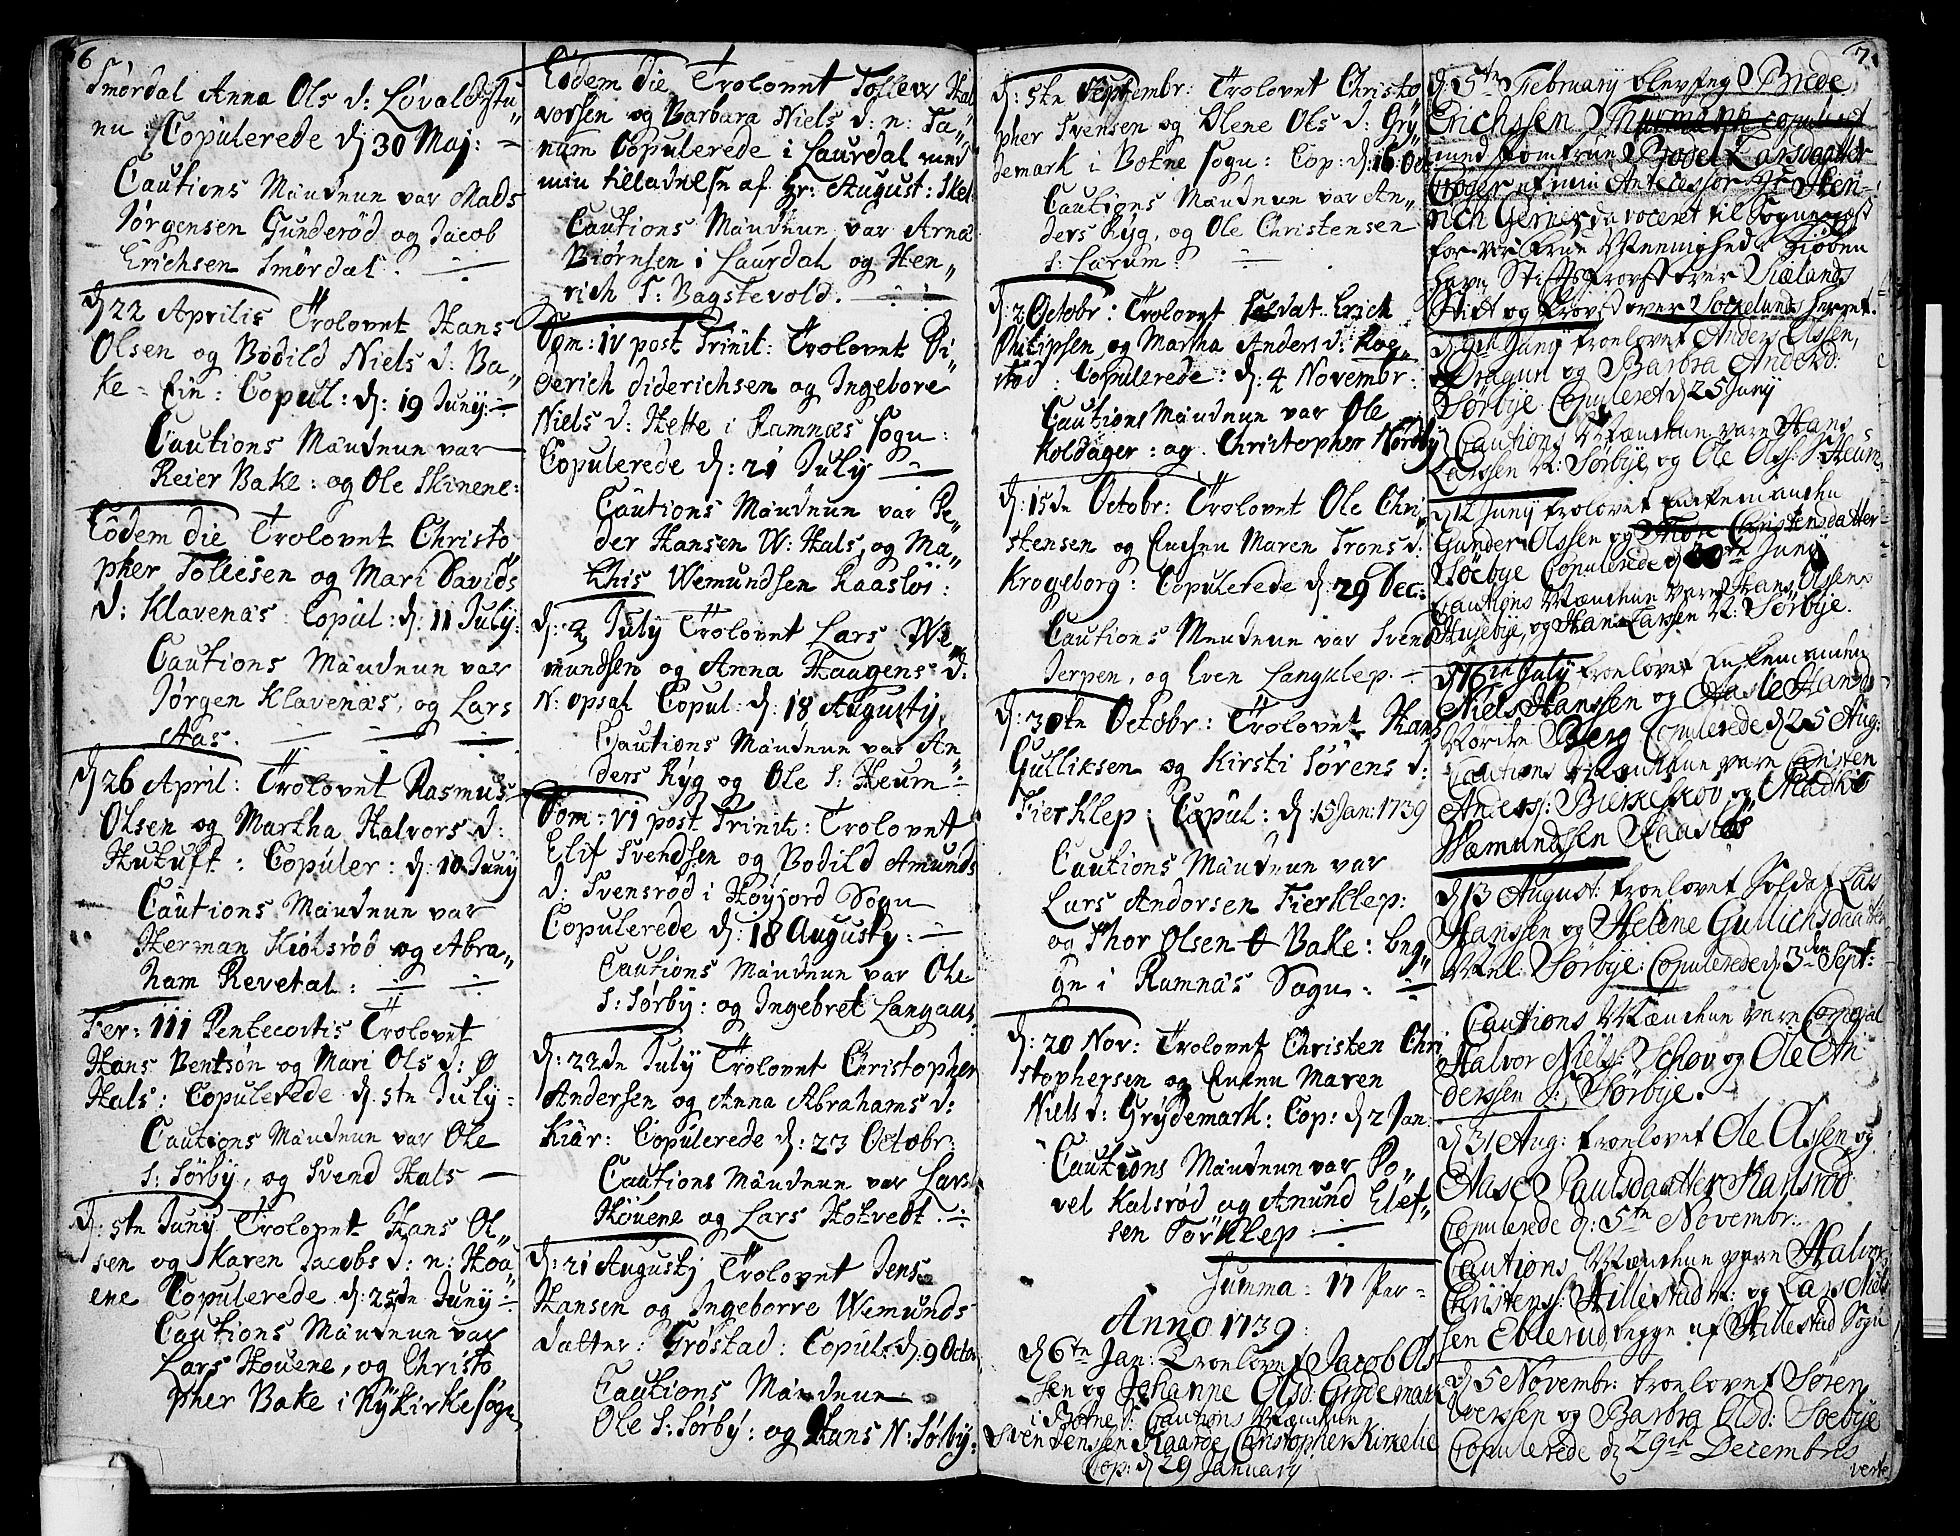 6
Smördal Anna Ols d: Lövaldstu
nu: Copulerede d: 30 Maj: —
Cautions Mändnun var Mads
Jörgensen Gunderöd og Jacob
Erichsen Smördal. ÷
d: 22 Aprilis Trolovet Hans
Olsen og Bodild Niels d: Ba„
ke- Copul: d: 19 Junij: ÷
Cautions Mändnun var
Reier Bake: og Ole Skinene:
Eodem die Trolovet Christo
pher Tollesen og Mari Davids
d: Klavenäs Copul: d: 11 July:
Cautions Mändnun var
Jörgen Klavenäs, og Lars
Aas. — — ÷
d: 26 April: Trolovet Rasmus
Olsen og Martha Halvors d:
Copuler: d: 10 Junij
Cautions Mändnun var
Herman Kiölsröd og Abra„
ham Revetal: ÷ ÷
Fer: III Pentecostis Trolovet
Hans Bentsön og Mari Ols d: Ø
Hals: Copulerede d. 5te July:
Cautions Mändnun var Ole
S: Sörby, og Svend Hals —
d: 5te Junij Trolovet Hans Ol„
sen og Karen Jacobs d: n: Hou„
ene Copulerede d: 25de Junij ÷
Cautions Mändnun var
Lars Houene, og Christo
pher Bake i Nykirke sogn
Eodem die Trolovet Tollev Hal
vorsen og Barbara Niels d: n: Fa„
num Copulerede i Laurdal med
min tilladelse af Hr: August: Skel
Cautions Mändnun var Arne
Biörnsen i Laurdal og Hen„
rich S: Bagstevold. — ÷
Dom: IV post Trinit: Trolovet Di„
derich Diderichsen og Ingebore
Niels d: Hette i Ramnæs sogn:
Copulerede d: 21 July ÷
Cautions Mändnun var Pe„
der Hansen W: Hals, og Ma„
this Wemundsen Raaslös:
d: 2 July Trolovet Lars We
mundsen og Anna Haagens d:
N: opsal Copul: d: 18 Augusty,
Cautions Mändnun var An„
ders Ryg og Ole S: Heum ÷
Dom: VI post Trinit: Trolovet
Elif Svendsen og Bodild Amunds
d: Svensröd i Höyjord Sogn
Copulerede d: 18 Augusty: —
Cautions Mändnun var Ole
S: Sörby: og Ingebret Langaas.
d: 22de July Trolovet Christopher
Andersen og Anna Abrahams d:
Kiär: Copulerede d: 23 Octobr:
Cautions Mändnun var Lars
Houene og Lars Holvedt. ÷
d: 21 Augusty Trolovet Jens
Hansen og Ingeborre Wemunds
datter: Gröstad: Copul: d: 9 Octo
Cautions Mändnun
Ole S: Sörby: og Hans N: Sörby:
d: 5te Septembr: Trolovet Christo
pher Svensen og Olene Ols d: Gry„
demark i Botne sogn: Cop: d: 16 Oct
Cautions Mändnun var An„
ders Ryg, og Ole Christensen
S: Larum: ÷
d: 2 Octobr: Trolovet Soldat Erich
Philipsen og Martha Anders d: Rog„
stad: Copulerede: d: 4 Novembr:
Cautions Mändnun var Ole
Koldager: og Christopher Nordby
d: 15de Octobr: Trolovet Ole Chri„
stensen og Enchen Maren Trons d:
Krogeborg: Copulerede d: 29 Dec:
Cautions Mendnun var Svend
Jerpen, og Even Langklep. ÷
d: 30te Octobr: Trolovet Hans
Gulliksen og Kirsti Sörens d:
Fierklep: Copul: d: 15 Jan: 1739
Cautions Mändnun var
Lars Andorsen Fierklep:
og Thor Olsen Bake:
i Ramnäs Sogn: ÷
d: 20 Nov: Trolovet Christen Chri
stophersen og Enken Maren
Niels d: Grydemark: Cop: d: 2 Jan:
Cautions Mändnun var Po„
vel Kalsröd og Amund Elef„
sen Törklep: ÷
Summa = 17 Par-
Anno 1739:
d: 6te Jan: Troelovet Jacob Ols
sen og Johanne Olsd: Grydemark
i Botne S: Cautions Mændene
Sven Jensen Haarde, Christopher Kirkelie
Cop: d: 29 January
7.
d: 5te February blev jeg Brede
Erichssen Thurmann copuleret
med Jomfrue Bodel Larsdaatter
af min Antecessor Hr: Hen-
rich Gerner, da voceret til Sogneprest
for Vor Frue Menighed i Kiöben
havn, Stiftsprovst over Siælands
Stift og Provst over Sockelunds Herret.
d: 9de Junij troelovet Anders Olssen,
Dragun og Barbra Andersd:
Sörbye. Copuleret d: 25 Junij
Cautions Mændene vare Hans
Larssen N: Sörbye, og Ole Olss: S: Heum,
d: 12 Junij troelovet Enkemanden
Gunder Olssen og Thore Christensdatter
Söebye Copulerede d: 30te Junij
Cautions Mændene vare Hans Olssen
Husebye, og Hans Larsen N: Sörbye.
d: 16de July, troelovet Enkemanden
Niels Hanssen og Aasle Hansd:
Nordre Berg Copulerede d: 25 Aug:
Cautions Mændene vare Christen
Anderss: Birkeskov og Mathis
Wæmundssen Raaslös
d: 13 August: troelovet Soldat Lars
Hanssen og Helene Gullichsdaatter
Mel: Sörbye: Copulerede d: 3den Sept:
Cautions Mændene vare Corporal
Halvor Nielss: Schov og Ole An
derssen S: Sörbye.
d: 31 Aug: troelovet Ole Olssen og
Aase Paulsdaatter Kalsröd
Copulerede d: 5te Novembr:
Cautions Mændene vare Halvor
Christenss: Hillestad N: og Lars Niels
sen Eblerud begge af Hillestad Sogn
d: 5 Novembr: troelovet Sören
Iverssen og Barbra Olsd: Söebye
Copulerede d: 29de Decembris
verte